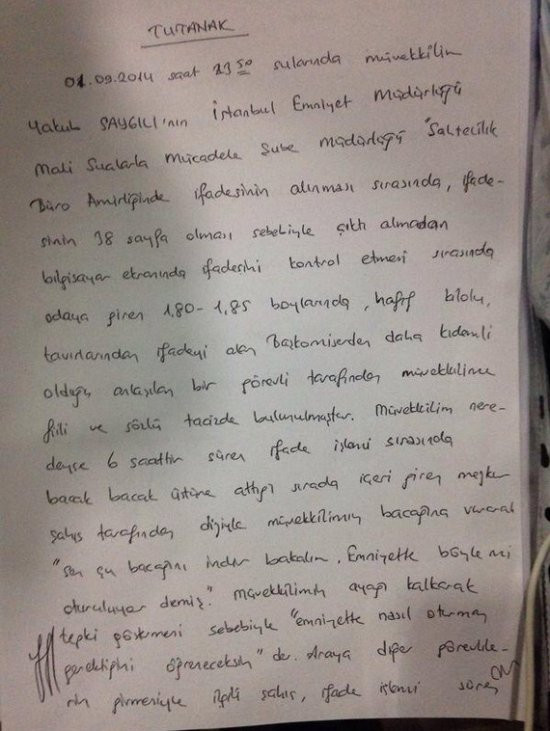 TUTANAK
01.09.2014 saat 23 50 sularında müvekkilim
Yakub SAYGILI'nın İstanbul Emniyet Müdürlüğü
Mali Suçlarla Mücadele Şube Müdürlüğü "Sahtecilik
Büro Amirliğinde ifadesinin alınması sırasında, ifade-
sinin 38 sayfa olması sebebiyle çıktı almadan
bilgisayar ekranında ifadesini kontrol etmesi sırasında
odaya giren 1,80-1,85 boylarında, hafif kilolu,
tavırlarından ifadeyi alan Başkomiserden daha kıdemli
olduğu anlaşılan bir görevli tarafından müvekkilime
fiili ve sözlü tacizde bulunulmuştur. Müvekkilim nere-
deyse 6 saattir süren ifade işlemi sırasında
bacak bacak üstüne attığı sırada içeri giren mezkur
şahıs tarafından diziyle müvekkilimin bacağına vurarak
"sen şu bacağını indir bakalım. Emniyette böyle mi
oturuluyor demiş." müvekkilimin ayağa kalkarak
tepki göstermesi sebebiyle "emniyette nasıl oturman
gerektiğini öğreneceksin" der. Araya diğer görevlile-
rin girmesiyle ilgili şahıs, ifade işlemi süren